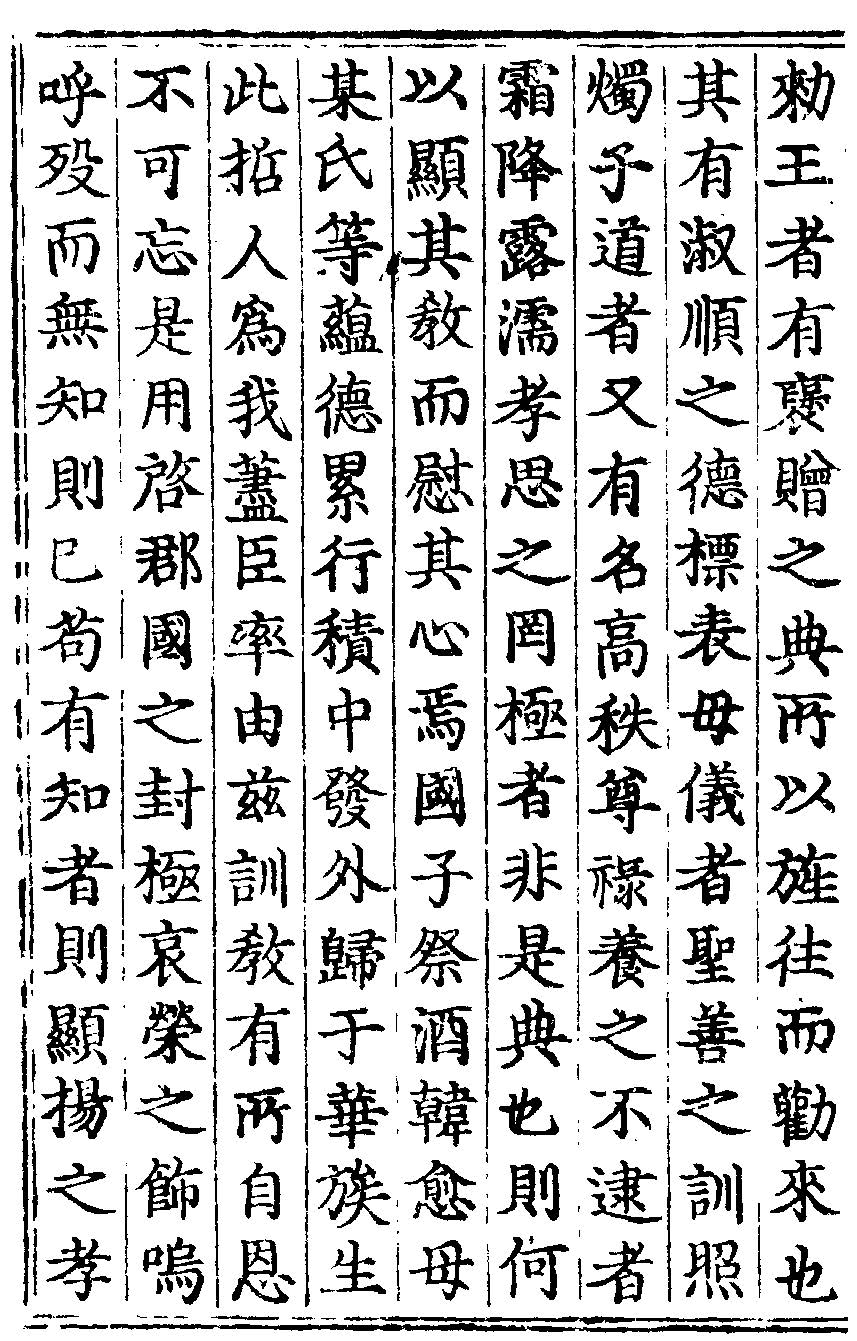 勑王者有襃贈之典所以旌往而勸來也
其有淑順之德標表母儀者聖善之訓照
燭子道者又有名高秩尊祿養之不逮者
霜降露濡孝思之罔極者非是典也則何
以顯其教而慰其心焉國子祭酒韓愈母
某氏等蘊德累行積中發外歸于華族生
此哲人爲我藎臣率由兹訓教有所自恩
不可忘是用啓郡國之封極哀榮之飾嗚
呼殁而無知則已苟有知者則顯揚之孝